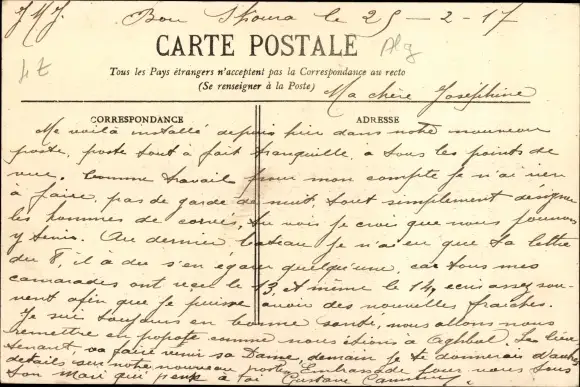 JMJ. Bou Skoura le 25-2-17
CARTE POSTALE
Alg
Tous les Pays étrangers n'acceptent pas la Correspondance au recto
(Se renseigner à la Poste)
Ma chère Joséphine
CORRESPONDANCE
ADRESSE
Me voilà installé depuis hier dans notre nouveau
poste, poste tout à fait tranquille, a tous les points de
vue. Comme travail pour mon compte je n'ai rien
à faire, pas de garde de nuit, tout simplement désigner
les hommes de corvés, tu vois je crois que nous pouvons
y tenir. Au dernier bateau je n'ai eu que ta lettre
du 8, il a du s'en égarer quelqu'une, car tous mes
camarades ont reçu le 13, et même le 14, ecris assez sou-
vent afin que je puisse avoir des nouvelles fraîches.
Je suis toujours en bonne santé, nous allons nous
remettre en popote comme nous étions à Aghbal. Le lieu-
tenant va faire venir sa Dame, demain je te donnerais d'autres
détails sur notre nouveau poste. Embrassade pour vous tous
Ton Mari qui pense à toi Gustave